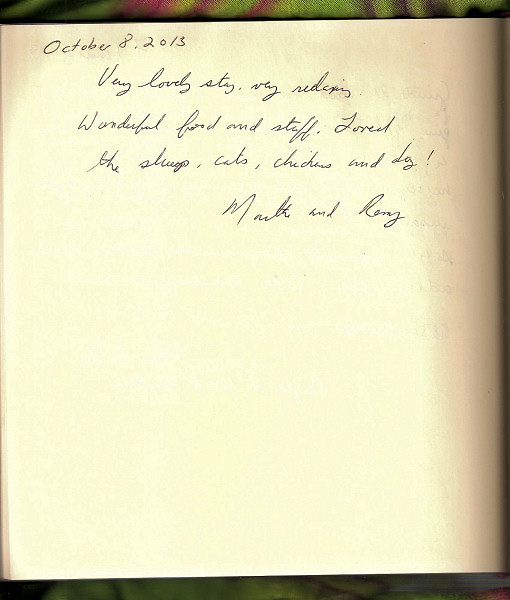 October 8, 2013
Very lovely stay, very relaxing.
Wonderful food and staff. Loved
the sheep, cats, chickens and dog!
and